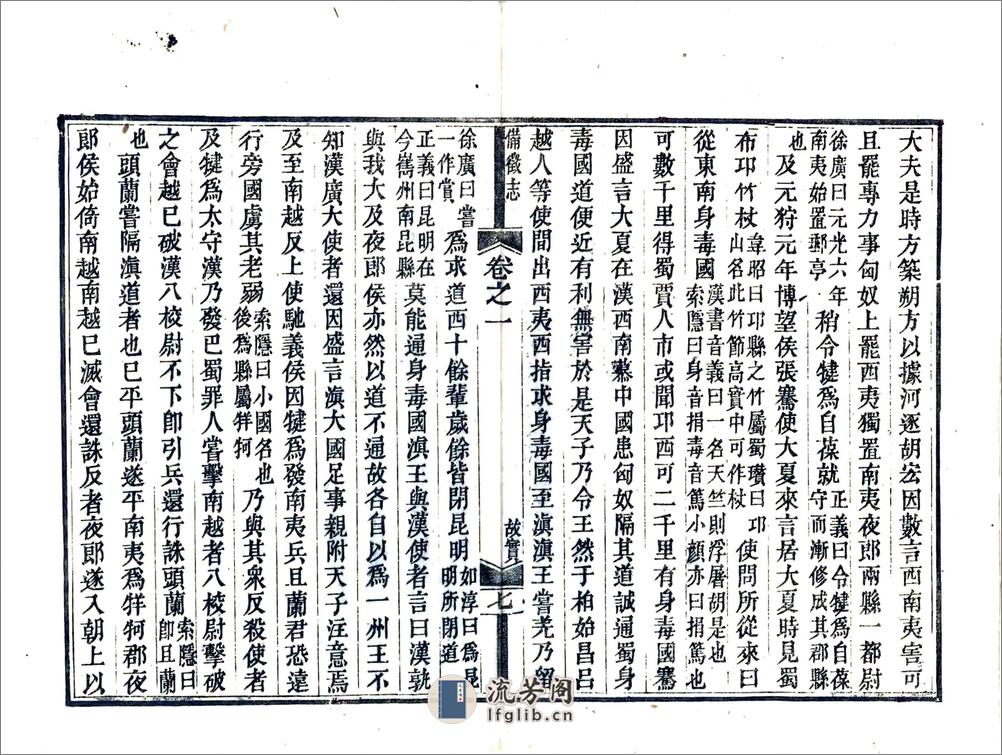 大夫是時方築朔方以據河逐胡宏因數言西南夷害可
且罷專力事匈奴上罷西夷獨置南夷夜郎兩縣一都尉
徐廣曰元光六年南夷始置郵亭稍令犍爲自葆就正義曰令犍爲自葆守而漸修成其郡縣
也及元狩元年博望侯張騫使大夏來言居大夏時見蜀
布邛竹杖韋昭曰邛縣之竹屬蜀瓚曰邛山名此竹節高實中可作杖使問所從來曰
從東南身毒國漢書音義曰一名天竺則浮屠胡是也索隱曰身音捐毒音篤小顏亦曰捐篤也
可數千里得蜀賈人市或聞邛西可二千里有身毒國騫
因盛言大夏在漢西南慕中國患匈奴隔其道誠通蜀身
毒國道便近有利無害於是天子乃令王然于柏始昌呂
越人等使間出西夷西指求身毒國至滇滇王嘗羌乃留
備徵志
卷之一
故實
七
徐廣曰嘗一作賞爲求道西十餘輩歲餘皆閉昆明如淳曰爲昆明所閉道
正義曰昆明在今嶲州南昆縣莫能通身毒國滇王與漢使者言曰漢孰
與我大及夜郎侯亦然以道不通故各自以爲一州王不
知漢廣大使者還因盛言滇大國足事親附天子注意焉
及至南越反上使馳義侯因犍爲發南夷兵且蘭君恐遠
行旁國虜其老弱索隱曰小國名也後爲縣屬牂柯乃與其衆反殺使者
及犍爲太守漢乃發巴蜀罪人嘗擊南越者八校尉擊破
之會越已破漢八校尉不下卽引兵還行誅頭蘭索隱曰卽且蘭
也頭蘭嘗隔滇道者也已平頭蘭遂平南夷爲牂柯郡夜
郎侯始倚南越南越已滅會還誅反者夜郎遂入朝上以
流芳閣
lfglib.cn